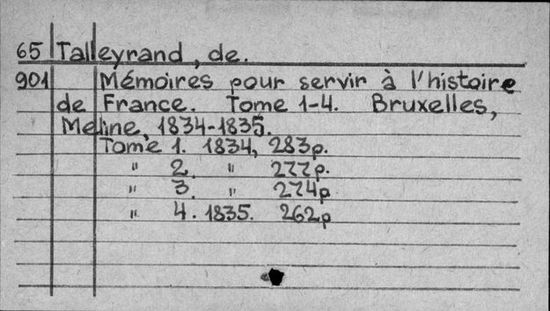 65 Talleyrand, de.
901 Mémoires pour servir à l'histoire
de France. Tome 1-4. Bruxelles,
Meline, 1834-1835.
Tome 1. 1834, 283p.
" 2. " 277p.
" 3. " 274p
" 4. 1835. 262p